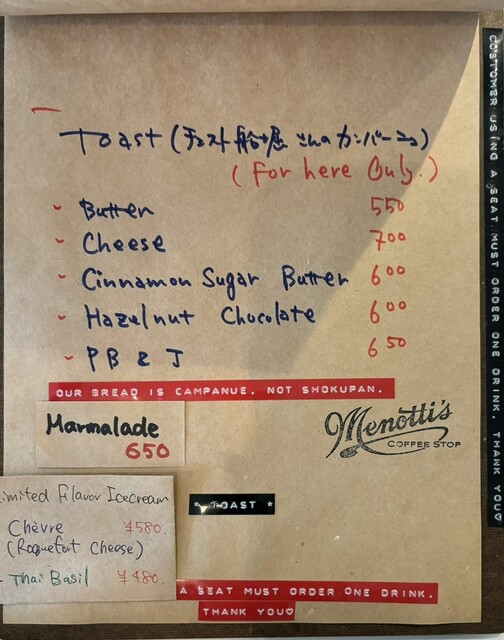 Toast (チェスト船堀 さんの カンパーニュ)
(For here Only.)
- Butter 550
- Cheese 700
- Cinnamon Sugar Butter 600
- Hazelnut Chocolate 600
- PB & J 650
OUR BREAD IS CAMPANUE, NOT SHOKUPAN.
Marmalade
650
Menotti's
COFFEE STOP
Limited Flavor Icecream
Chèvre ¥580.
(Roquefort Cheese)
- Thai Basil ¥480.
* TOAST *
A SEAT MUST ORDER ONE DRINK.
THANK YOU♡
CUSTOMER USING A SEAT MUST ORDER ONE DRINK. THANK YOU♡